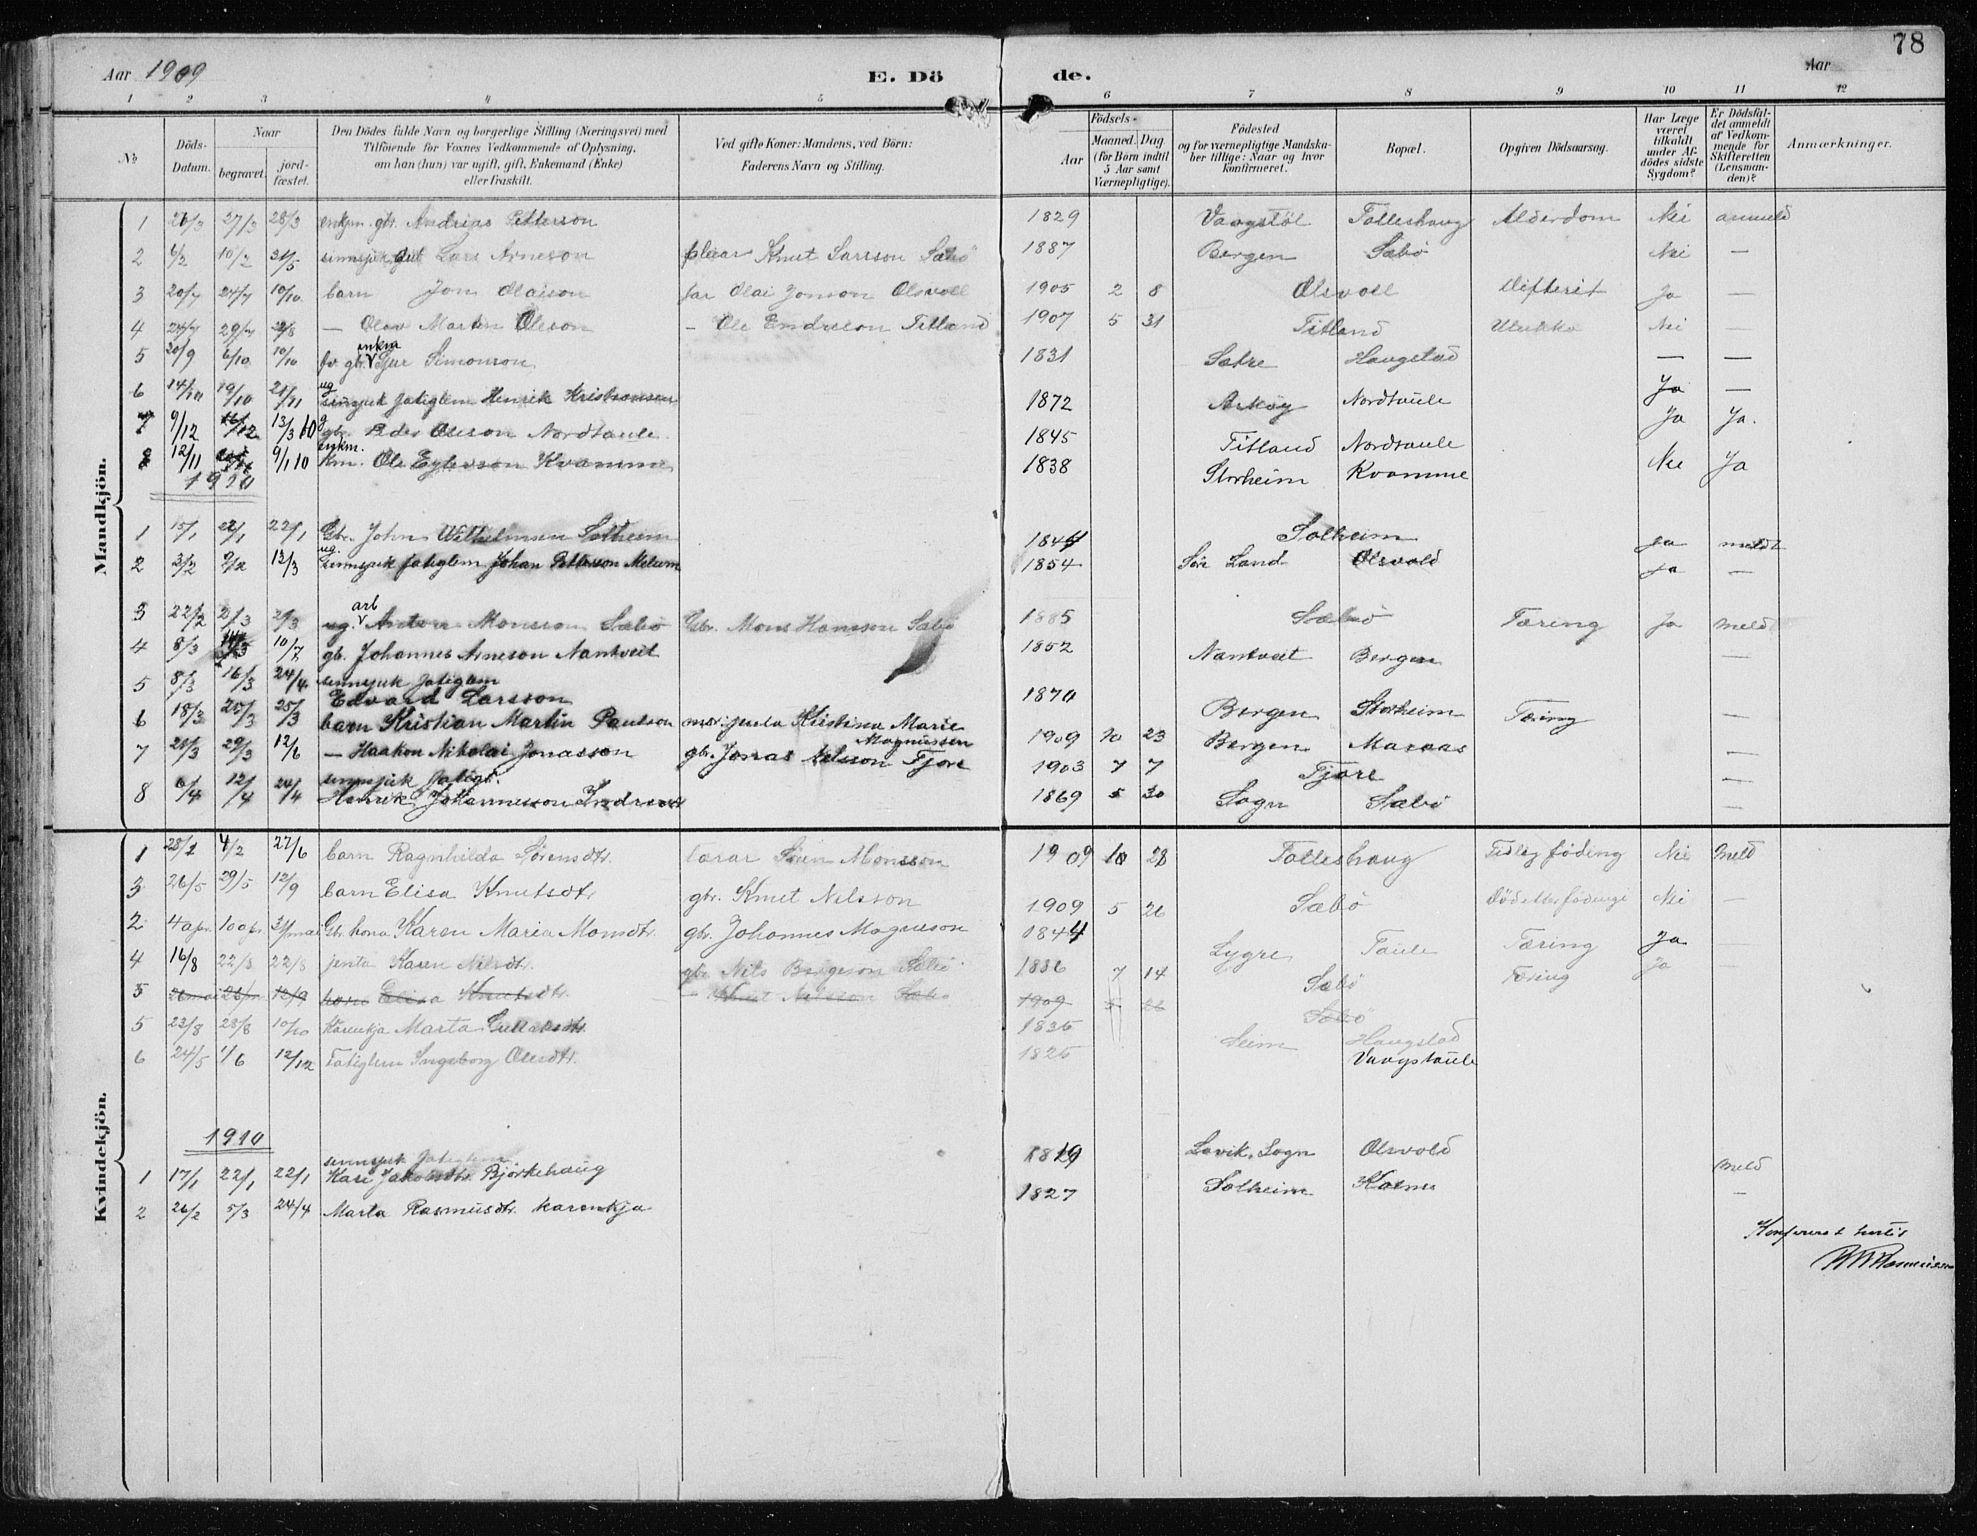 78
Aar 1909 E. Dö de. Aar
1 2 3 4 5 6 7 8 9 10 11 12
No
Döds-Datum.
Naar
begravet.
jord-fæstet.
Den Dödes fulde Navn og borgerlige Stilling (Næringsvei) med
Tilföiende for Voxnes Vedkommende af Oplysning,
om han (hun) var ugift, gift, Enkemand (Enke)
eller fraskilt.
Ved gifte Koner: Mandens, ved Börn:
Faderens Navn og Stilling.
Födsels-
Aar
Maaned. Dag
(för Born indtil
5 Aar samt
Værnepligtige).
Födested
og for værnepligtige Mandska-
ber tillige: Naar og hvor
konfirmeret.
Bopæl.
Opgiven Dödsaarsag.
Har Læge
været
tilkaldt
under Af-
dödes sidste
Sygdom?
Er Dödsfal-
det anmeldt
af Vedkom-
mende for
Skifteretten
(Lensman-
den)?
Anmærkninger.
Mandkjön.
1 26/3 27/3 28/3 enkjm. gbr. Andrias Petterson 1829 Vaagstöl Tolleshaug Alderdom Nei anmeld
2 6/2 10/2 31/5 sinnsjuk gut Lars Arneson pleiar Knut Larsson Sæbö 1887 Bergen Sæbö Nei —
3 20/7 24/7 10/10 barn Jon Olaison far Olai Jonson Olsvoll 1905 2 8 Olsvoll Difterit Ja —
4 24/7 29/7 29/8 — Olav Martin Oleson - Ole Endreson Titland 1907 5 31 Titland Ulukka Nei —
5 20/9 6/10 10/10 fv. gbr. enkm Sjur Simonson 1831 Sætre Haugstad — —
6 14/10 19/10 21/11 ug sinnsjuk fatiglem Henrik Kristiansen 1872 Askøy Nordtaule Ja —
7 9/12 16/12 13/3 10 g gbr. Peder Oleson Nordtaule 1845 Titland Nordtaule Ja Ja.
8 12/11 9/1 10 enkm. Km. Ole Eylevson Kvamme 1838 Storheim Kvamme Nei Ja
1910
1 15/1 22/1 22/1 Gbr. John Wilhelmsen Solheim 1844 Solheim Ja meldt
2 3/2 9/2 13/3 ug. sinnsjuk fatiglem Johan Petterson Melum 1854 Söre Land Olsvold Ja —
3 22/2 2/3 2/3 ug. arb Anton Monsson Sæbö Gbr. Mons Hansson Sæbö 1885 Sæbö Tæring Ja meld
4 8/3 14/3 10/7 gb. Johannes Arneson Nantveit 1852 Nantveit Bergen —
5 8/3 16/3 24/4 sinnsjuk fatiglem
Edvard Larsson 1870 Bergen Storheim Tæring —
6 18/3 25/3 25/3 barn Kristian Martin Paulson mor: jenta Kristina Marie
Magnussen 1909 10 23 Bergen —
7 21/3 29/3 12/6 — Haakon Nikolai Jonasson gb. Jonas Nilsson Fjore 1903 7 7 Fjore —
8 6/4 12/4 24/4 sinnsjuk fatigl.
Henrik Johannesson 1869 5 30 Sogn Sæbö —
Kvindekjön.
1 28/1 4/2 27/6 barn Ragnhilda Sörensdtr. lærar Sören Monsson 1909 10 28 Tolleshaug Tidleg föding Nei Meld
3 26/5 29/5 12/9 barn Elisa Knutsdtr. gbr. Knut Nilsson 1909 5 26 Sæbö Nei —
2 4 apr. 10 apr. 31 mai Gbr. kona Karen Maria Monsdtr. gbr. Johannes Magneson 1844 Lygre Taule Tæring Ja —
4 16/8 22/8 22/8 jenta Karen Nilsdtr. gbr. Nils Sæbö 1886 7 14 Sæbö Tæring Ja —
5 26 mai 12/9 barn Elisa Knutsdtr. — Knut Nilsson Sæbö 1909 5 26 Sæbö
5 23/8 28/8 10/10 Kaarenkja Marta 1835 Seim Haugstad
6 24/5 1/6 12/12 Fatiglem Ingeborg Olesdtr. 1825 Vaagstaule
1910
1 17/1 22/1 22/1 sinnsjuk fatiglem
Kari Jakobsdtr. Björkehaug 1819 Lavik, Sogn Olsvold Meld
2 26/2 5/3 24/4 Marta Rasmusdtr. kaarenkja 1827 Solheim —